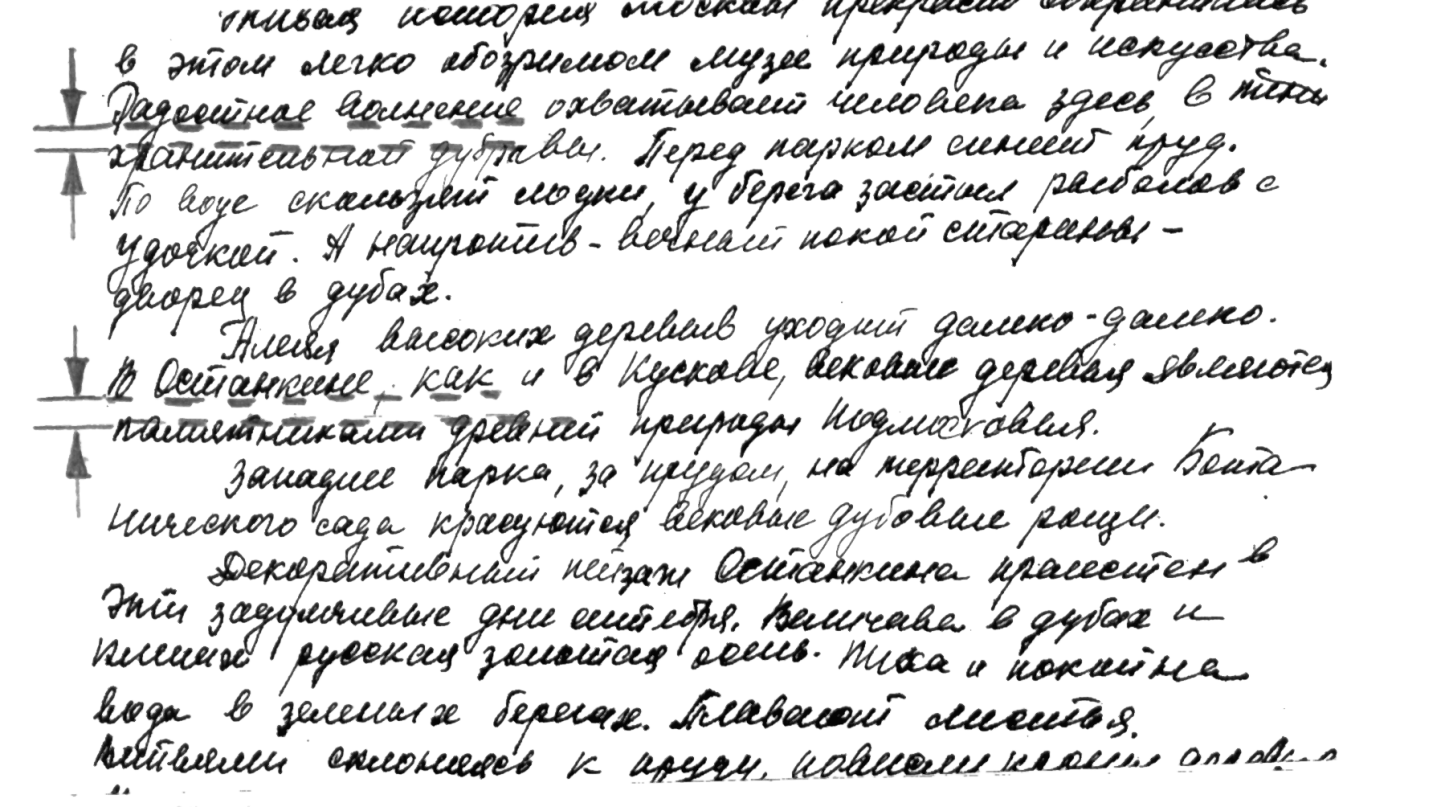 истории Москвы прекрасно сохранились
в этом легко обозримом музее природы и искусства.
Радостное волнение охватывает человека здесь, в тени
хранительной дубравы. Перед парком синеет пруд.
По воде скользят лодки, у берега застыл рыболов с
удочкой. А напротив - вечный покой старины -
дворец в дубах.
Аллея высоких деревьев уходит далеко-далеко.
В Останкине, как и в Кускове, вековые деревья являются
памятниками древней природы Подмосковья.
Западнее парка, за прудом, на территории Бота
нического сада красуются вековые дубовые рощи.
Декоративный пейзаж Останкина прелестен в
эти задумчивые дни сентября. Величава в дубах и
кленах русская золотая осень. Тиха и покойна
вода в зеленых берегах. Плавают листья.
Ветвями склоняясь к пруду,